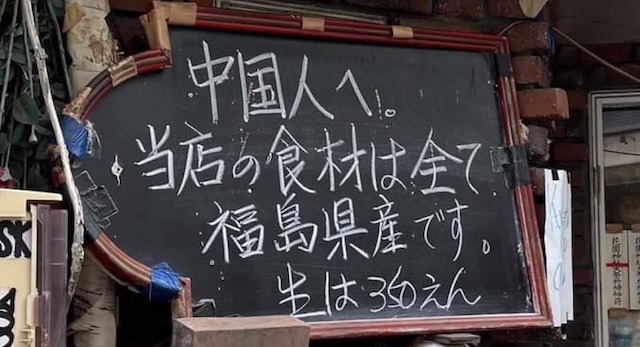 中国人へ!。
当店の食材は全て
福島県産です。
生は350えん
SK
花園神